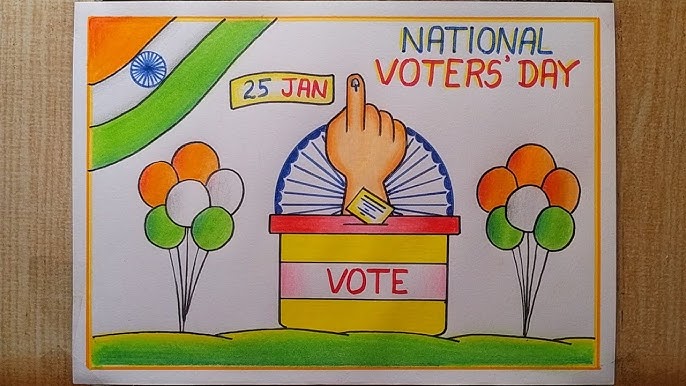 NATIONAL
VOTERS' DAY
25 JAN
VOTE